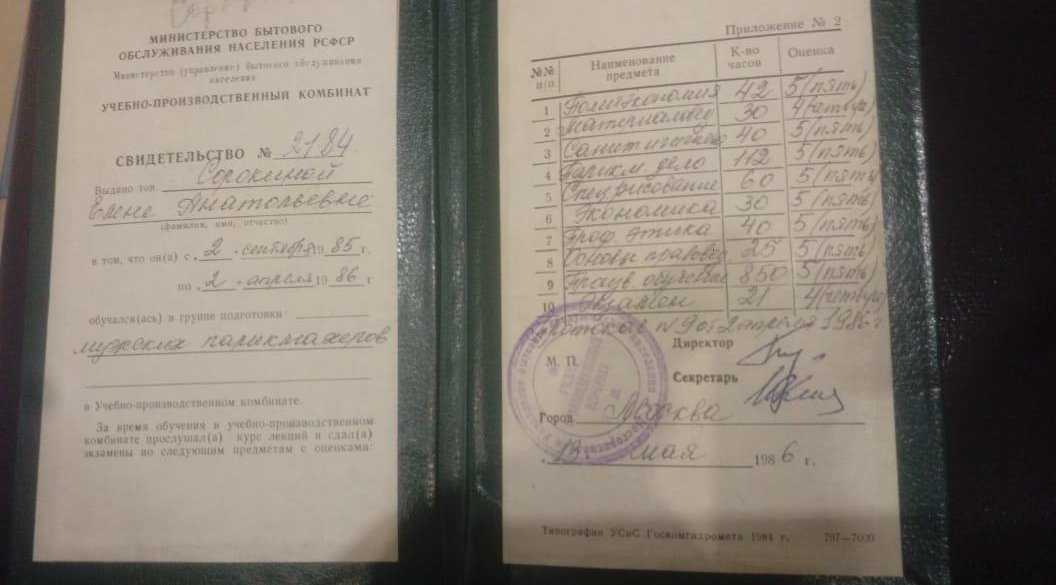 МИНИСТЕРСТВО БЫТОВОГО
ОБСЛУЖИВАНИЯ НАСЕЛЕНИЯ РСФСР
Министерство (управление) бытового обслуживания
населения
УЧЕБНО-ПРОИЗВОДСТВЕННЫЙ КОМБИНАТ
СВИДЕТЕЛЬСТВО № 2184
Выдано тов. Сорокиной
Елене Анатольевне
(фамилия, имя, отчество)
в том, что он(а) с „2 сентября 1985 г.
по „2 апреля 1986 г
обучался(ась) в группе подготовки
мужских парикмахеров
в Учебно-производственном комбинате.
За время обучения в учебно-производственном
комбинате прослушал(а) курс лекций и сдал(а)
экзамены по следующим предметам с оценками:
Приложение № 2
№№ п/п Наименование предмета К-во часов Оценка
1 Политэкономия 42 5 (пять)
2 30 4
3 40 5 (пять)
4 Парикм дело 112 5 (пять)
5 Спец рисование 60 5 (пять)
6 Экономика 30 5 (пять)
7 Проф этика 40 5 (пять)
8 Основы 25 5 (пять)
9 обучение 850 5 (пять)
10 Экзамен 21 4
Протокол N 9 от 2 апреля 1986 г
М. П.
Директор
Секретарь
Город Москва
„13 мая 1986 г.
Типография УСиС Госкомгидромета 1984 г. 797—7000